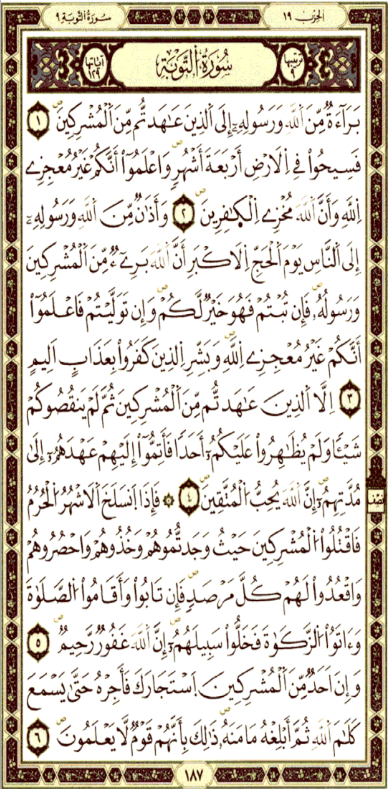 الحزب ١٩
سورة التوبة ٩
ترتيبها ٩
سُورَةُ التَّوْبَةِ
آياتها ١٢٩
بَرَآءَةٌ مِّنَ اَ۬للَّهِ وَرَسُولِهِۦٓ إِلَى اَ۬لذِينَ عَٰهَدتُّم مِّنَ اَ۬لْمُشْرِكِينَۖ ١
فَسِيحُواْ فِے اِ۬لَارْضِ أَرْبَعَةَ أَشْهُرٖۖ وَاعْلَمُوٓاْ أَنَّكُمْ غَيْرُ مُعْجِزِے
اِ۬للَّهِ وَأَنَّ اَ۬للَّهَ مُخْزِے اِ۬لْكٰ۪فِرِينَۖ ٢ وَأَذَٰنٞ مِّنَ اَ۬للَّهِ وَرَسُولِهِۦٓ
إِلَى اَ۬لنَّاسِ يَوْمَ اَ۬لْحَجِّ اِ۬لَاكْبَرِ أَنَّ اَ۬للَّهَ بَرِےٓءٞ مِّنَ اَ۬لْمُشْرِكِينَ
وَرَسُولُهُۥۖ فَإِن تُبْتُمْ فَهُوَ خَيْرٞ لَّكُمْۖ وَإِن تَوَلَّيْتُمْ فَاعْلَمُوٓاْ
أَنَّكُمْ غَيْرُ مُعْجِزِے اِ۬للَّهِۖ وَبَشِّرِ اِ۬لذِينَ كَفَرُواْ بِعَذَابٍ اَلِيمٍ
٣ اِلَّا اَ۬لذِينَ عَٰهَدتُّم مِّنَ اَ۬لْمُشْرِكِينَ ثُمَّ لَمْ يَنقُصُوكُمْ
شَيْـٔٗا وَلَمْ يُظَٰهِرُواْ عَلَيْكُمُۥٓ أَحَدٗا فَأَتِمُّوٓاْ إِلَيْهِمْ عَهْدَهُمُۥٓ إِلَىٰ
مُدَّتِهِمُۥٓۖ إِنَّ اَ۬للَّهَ يُحِبُّ اُ۬لْمُتَّقِينَۖ ٤ ۞ فَإِذَا اَ۪نسَلَخَ اَ۬لَاشْهُرُ اُ۬لْحُرُمُ
فَاقْتُلُواْ اُ۬لْمُشْرِكِينَ حَيْثُ وَجَدتُّمُوهُمْ وَخُذُوهُمْ وَاحْصُرُوهُمْ
وَاقْعُدُواْ لَهُمْ كُلَّ مَرْصَدٖۖ فَإِن تَابُواْ وَأَقَامُواْ اُ۬لصَّلَوٰةَ
وَءَاتَوُاْ اُ۬لزَّكَوٰةَ فَخَلُّواْ سَبِيلَهُمُۥٓۖ إِنَّ اَ۬للَّهَ غَفُورٞ رَّحِيمٞۖ ٥
وَإِنَ اَحَدٞ مِّنَ اَ۬لْمُشْرِكِينَ اَ۪سْتَجَارَكَ فَأَجِرْهُ حَتَّىٰ يَسْمَعَ
كَلَٰمَ اَ۬للَّهِ ثُمَّ أَبْلِغْهُ مَأْمَنَهُۥۖ ذَٰلِكَ بِأَنَّهُمْ قَوْمٞ لَّا يَعْلَمُونَۖ ٦
١٨٧